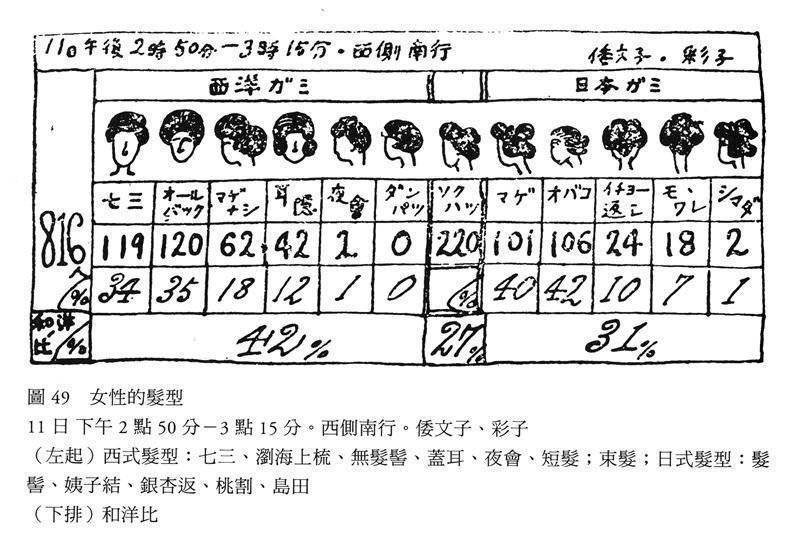 11日午後2時50分—3時15分・西側南行 倭文子・彩子
西洋ガミ 日本ガミ
七三 オールバック マゲナシ 耳隠 夜會 ダンパツ ソクハツ マゲ オバコ イチョー返シ モヽワレ シマダ
816 119 120 62 42 2 0 220 101 106 24 18 2
% 34 35 18 12 1 0 % 40 42 10 7 1
和洋比% 42% 27% 31%
圖 49 女性的髮型
11 日 下午 2 點 50 分－3 點 15 分。西側南行。倭文子、彩子
（左起）西式髮型：七三、瀏海上梳、無髮髻、蓋耳、夜會、短髮；束髮；日式髮型：髮
髻、姨子結、銀杏返、桃割、島田
（下排）和洋比